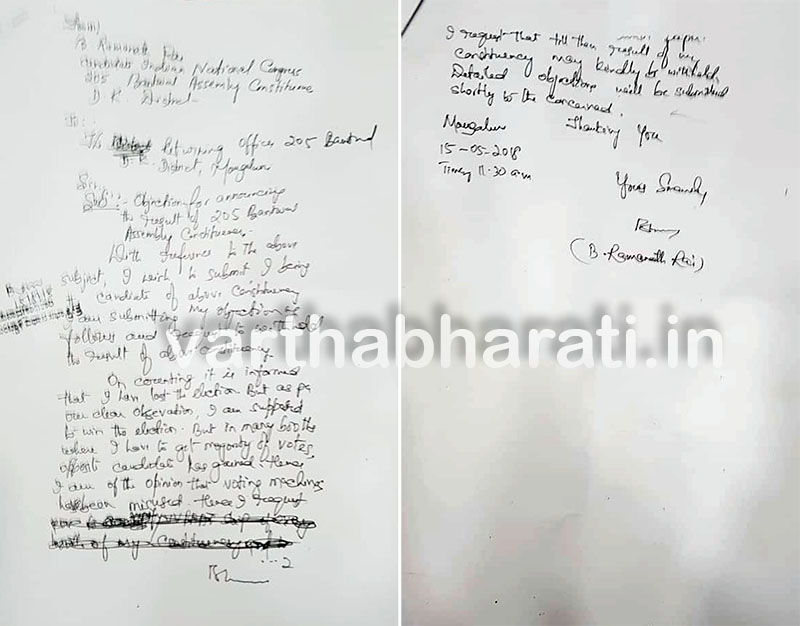 B Ramanath Rai
Indian National Congress
205 Bantwal Assembly Constituency
D.K. District
Returning Officer 205 Bantwal
D.K. District, Mangaluru
Sir,
Sub:- Objection for announcing
the result of 205 Bantwal
Assembly Constituency.
With reference to the above
subject, I wish to submit I being
candidate of above Constituency
I am submitting my objection as
follows and request to withhold
the result of above constituency.
On counting it is informed
that I have lost the election But as per
our clear observation, I am supposed
to win the election. But in many booths
where I have to get majority of votes,
opposite candidate has gained. Hence
I am of the opinion that voting machines
have been misused. Hence I request
... 2
I request that till then result of my
constituency may kindly be withheld.
Detailed objections will be submitted
shortly to the concerned.
Thanking You
Mangaluru
15-05-2018
Time 11.30 a.m
Yours Sincerely
(B. Ramanath Rai)
varthabharati.in